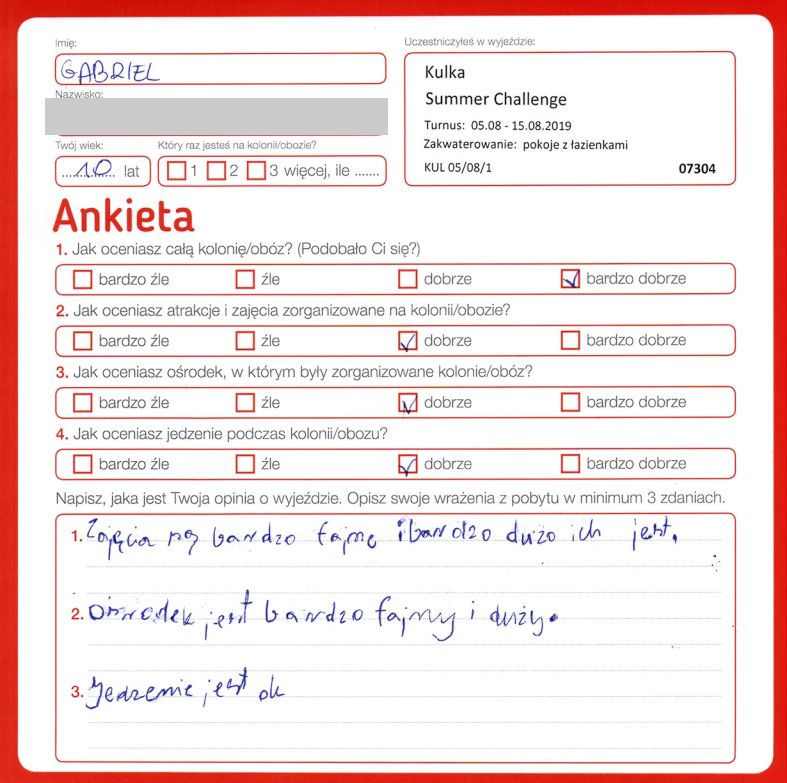 Imię:
Uczestniczyłeś w wyjeździe:
GABRIEL
Kulka
Summer Challenge
Nazwisko:
Turnus: 05.08 - 15.08.2019
Zakwaterowanie: pokoje z łazienkami
KUL 05/08/1 07304
Twój wiek: Który raz jesteś na kolonii/obozie?
10 lat 1 2 3 więcej, ile .......
Ankieta
1. Jak oceniasz całą kolonię/obóz? (Podobało Ci się?)
bardzo źle źle dobrze bardzo dobrze
2. Jak oceniasz atrakcje i zajęcia zorganizowane na kolonii/obozie?
bardzo źle źle dobrze bardzo dobrze
3. Jak oceniasz ośrodek, w którym były zorganizowane kolonie/obóz?
bardzo źle źle dobrze bardzo dobrze
4. Jak oceniasz jedzenie podczas kolonii/obozu?
bardzo źle źle dobrze bardzo dobrze
Napisz, jaka jest Twoja opinia o wyjeździe. Opisz swoje wrażenia z pobytu w minimum 3 zdaniach.
1. Zajęcia są bardzo fajne i bardzo dużo ich jest.
2. Ośrodek jest bardzo fajny i duży.
3. Jedzenie jest ok